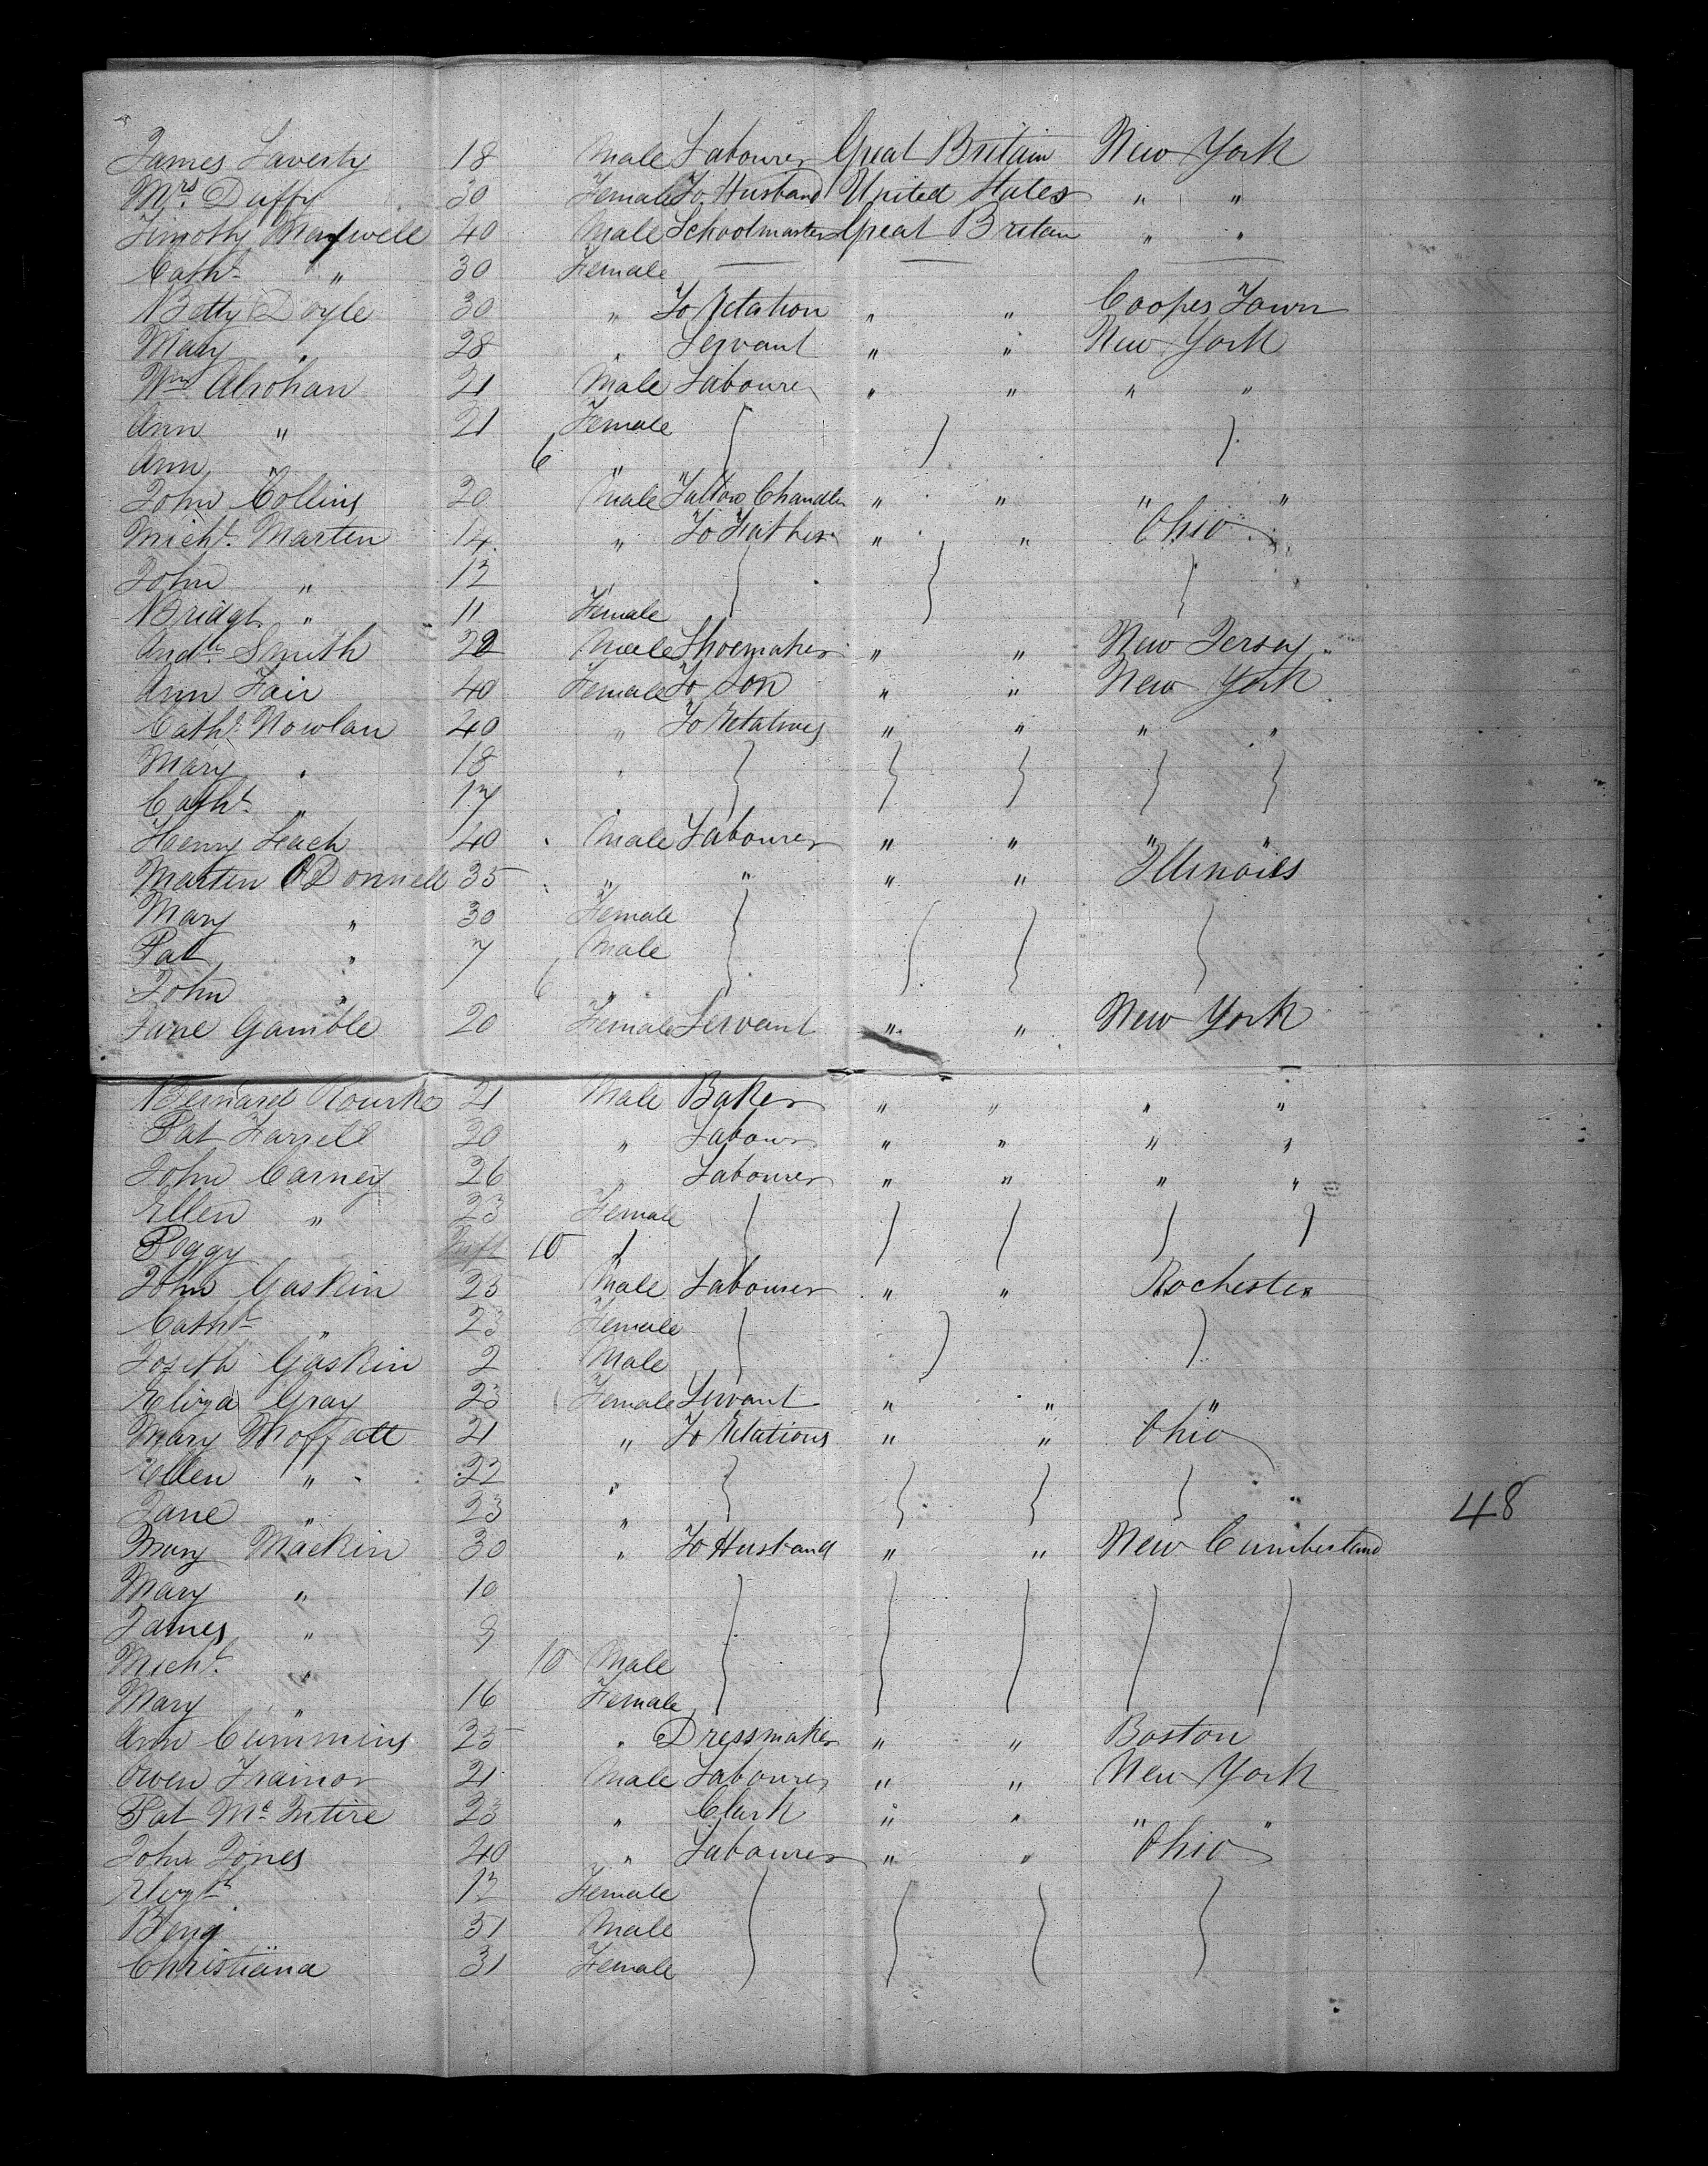 James Laverty 18 Male Labourer Great Britain New York
Mrs. Duffy 30 Female To Husband United States " "
Timothy Maxwell 40 Male Schoolmaster Great Britain " "
Cath. " 30 Female
Betty Doyle 30 " To Relation " " Coopers Town
Mary " 28 " Servant " " New York
Wm. 21 Male Labourer " " " "
Ann " 21 Female
Ann " 6 "
John Collins 20 Male Tallow Chandler " " " "
Michl. Marten 14 " To Father " " Ohio
John " 12
Bridgt. " 11 Female
Smith 22 Male Shoemaker " " New Jersey
Ann Fair 40 Female To Son " " New York
Catht. Nowlan 40 " To Relatives " " " "
Mary " 18 "
Catht. " 17 "
Henry Leach 40 Male Labourer " " " "
Marten ODonnell 35 " " " " Illinoies
Mary " 30 Female
Pat " 7 Male
John " 6 "
Jane Gamble 20 Female Servant " " New York
Bernard Rourke 21 Male Baker " " " "
Pat Farrell 20 " Labour " " " "
John Carney 26 " Labourer " " " "
Ellen " 23 Female
Peggy Inft 10
John Gaskin 25 Male Labourer " " Rochester
Catht. " 23 Female
Joseph Gaskin 2 Male
Eliza Gray 23 Female Servant " " "
Mary Moffatt 21 " To Relations " " Ohio
Ellen " 22 "
Jane " 23 " 48
Mary Mackin 30 " To Husband " " New Cumberland
Mary " 10
James " 9
Michl. " 10 Male
Mary " 16 Female
Ann Cummins 25 " Dressmaker " " Boston
Owen Trainor 21 Male Labourer " " New York
Pat Mc Intire 23 " Clark " " " "
John Jones 40 " Labourer " " Ohio
Elizth 12 Female
Benj 31 Male
Christiana 31 Female